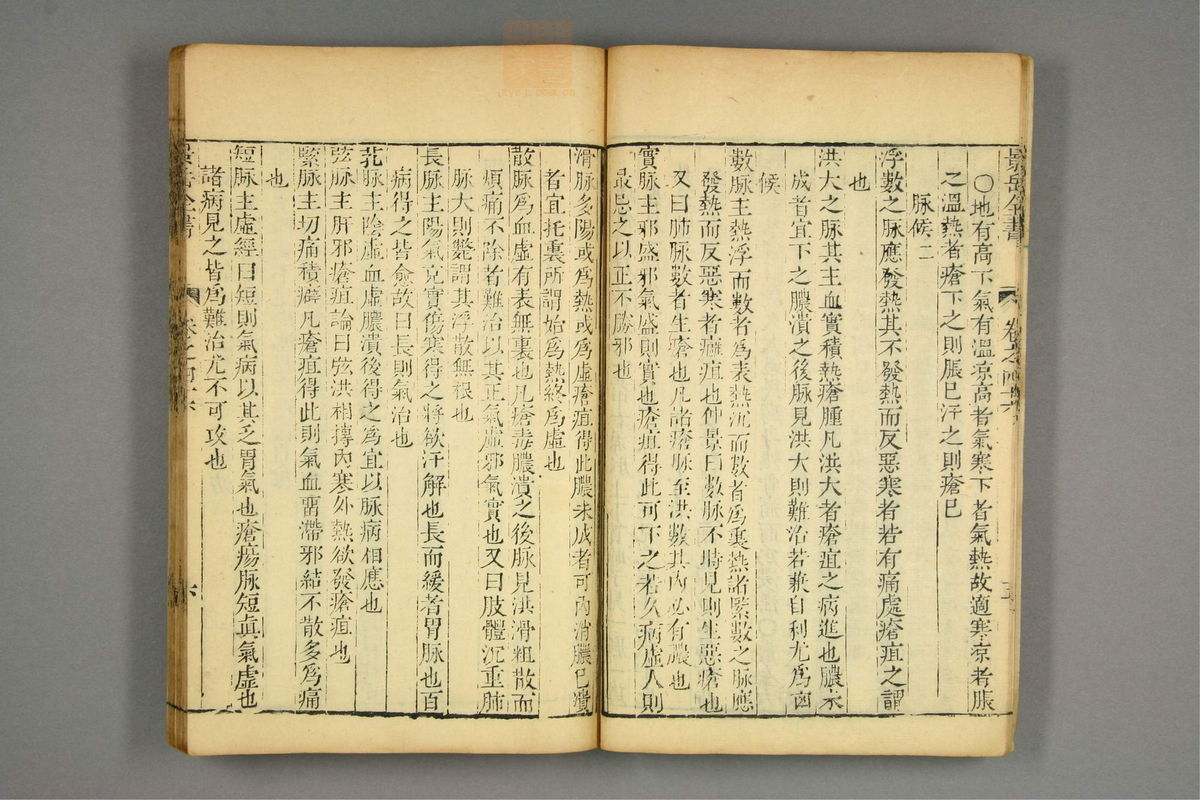 景岳全書
卷之四十六
〇地有高下氣有溫凉高者氣寒下者氣熱故適寒凉者脹
之溫熱者瘡下之則脹已汗之則瘡已
脉候二
浮數之脉應發熱其不發熱而反惡寒者若有痛處瘡疽之謂
也
洪大之脉其主血實積熱瘡腫凡洪大者瘡疽之病進也膿未
成者宜下之膿潰之後脉見洪大則難治若兼自利尤爲凶
候
數脉主熱浮而數者爲表熱沉而數者爲裏熱諸緊數之脉應
發熱而反惡寒者癰疽也仲景曰數脉不時見則生惡瘡也
又曰肺脉數者生瘡也凡諸瘡脉至洪數其內必有膿也
實脉主邪盛邪氣盛則實也瘡疽得此可下之若久病虛人則
最忌之以正不勝邪也
滑脉多陽或爲熱或爲虛瘡疽得此膿未成者可內消膿已潰
者宜托裏所謂始爲熱終爲虛也
散脉爲血虛有表無裏也凡瘡毒膿潰之後脉見洪滑粗散而
煩痛不除者難治以其正氣虛邪氣實也又曰肢體沉重肺
脉大則斃謂其浮散無根也
長脉主陽氣充實傷寒得之將欲汗解也長而緩者胃脉也百
病得之皆愈故曰長則氣治也
芤脉主陰虛血虛膿潰後得之爲宜以脉病相應也
弦脉主肝邪瘡疽論曰弦洪相摶內寒外熱欲發瘡疽也
緊脉主切痛積癖凡瘡疽得此則氣血畱滯邪結不散多爲痛
也
短脉主虛經曰短則氣病以其乏胃氣也瘡瘍脉短眞氣虛也
諸病見之皆爲難治尤不可攻也
景岳全書
卷之四十六
六